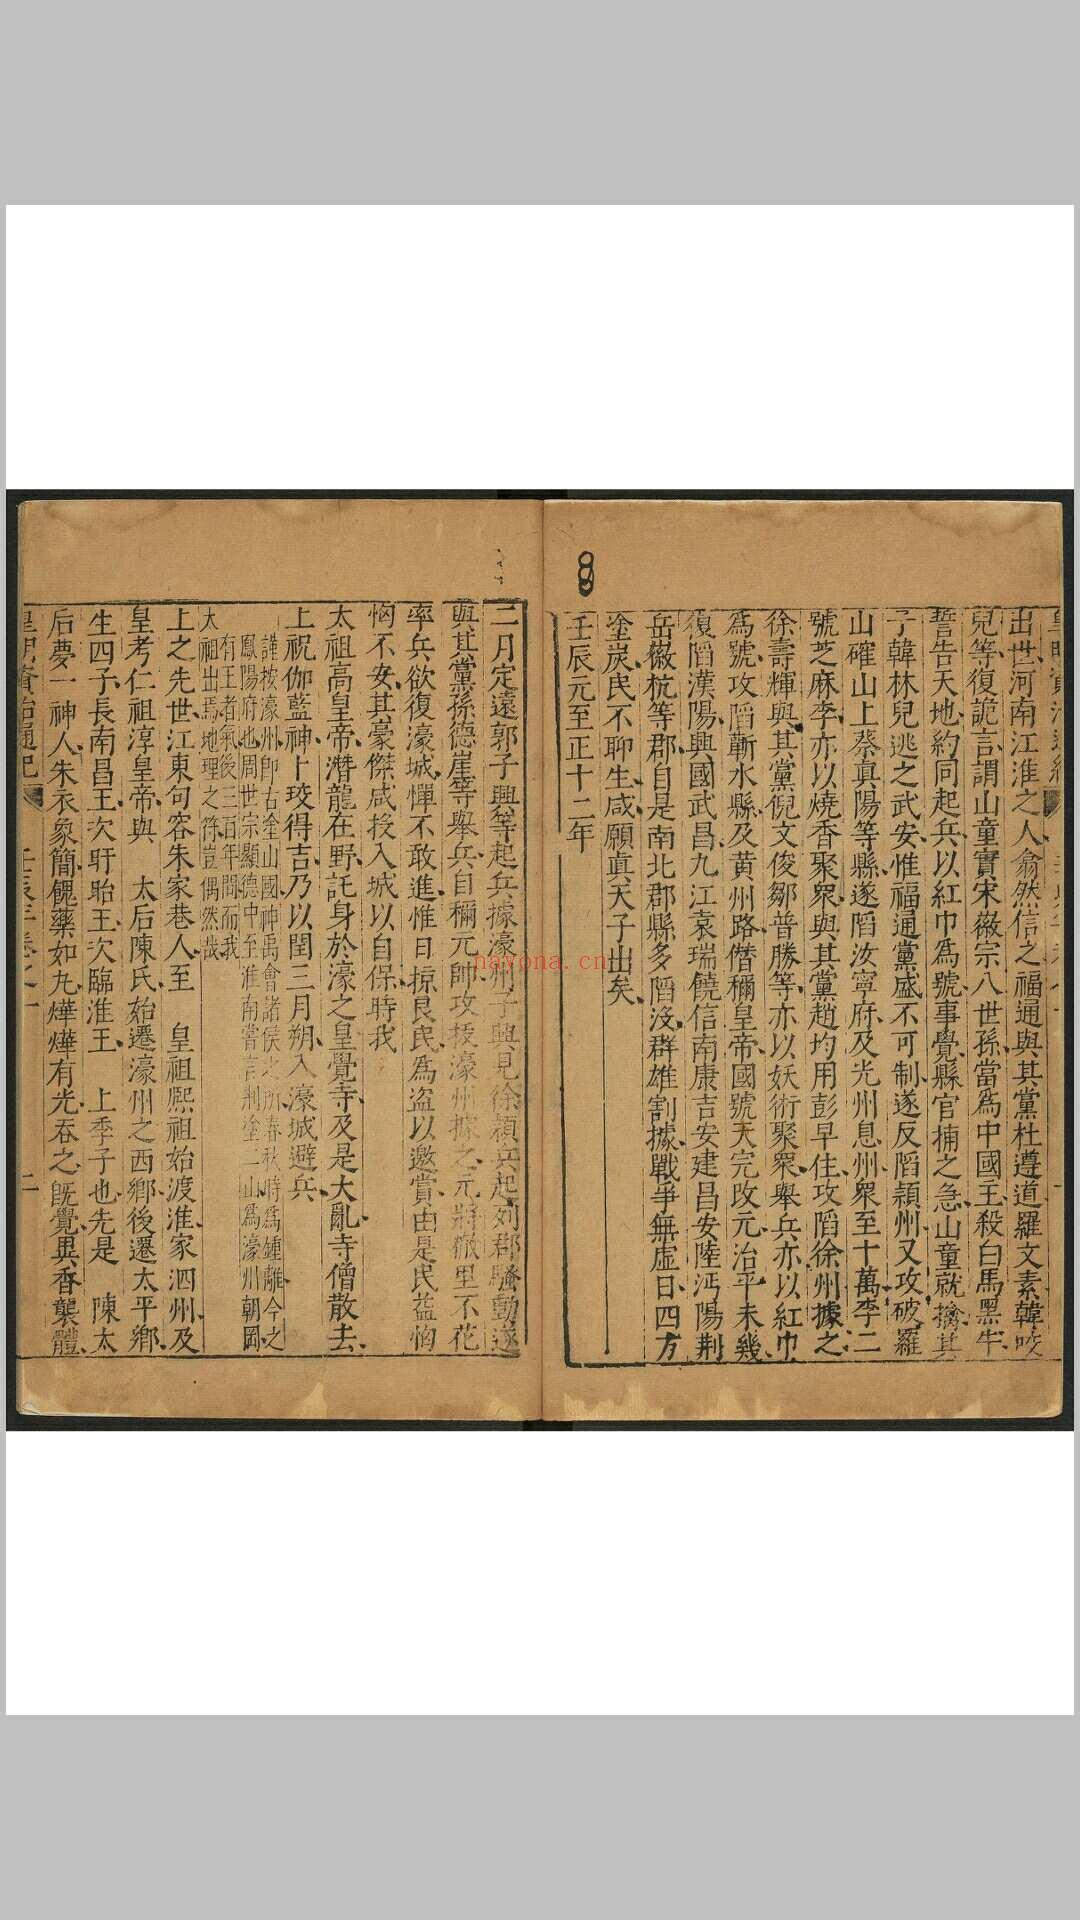 出世河南江淮之人翕然信之福通與其黨杜遵道羅文素韓咬
兒等復詭言謂山童實宋徽宗八世孫當爲中國主殺白馬黑牛
誓告天地約同起兵以紅巾爲號事覺縣官捕之急山童就擒其
子韓林兒逃之武安惟福通黨盛不可制遂反陷潁州又攻破羅
山確山上蔡真陽等縣遂陷汝寧府及光州息州衆至十萬李二
號芝麻李亦以燒香聚衆與其黨趙均用彭早住攻陷徐州據之
徐壽輝與其黨倪文俊鄒普勝等亦以妖術聚衆舉兵亦以紅巾
爲號攻陷蘄水縣及黄州路僭稱皇帝國號天完改元治平未幾
復陷漢陽興國武昌九江袁瑞饒信南康吉安建昌安陸沔陽荆
岳徽杭等郡自是南北郡縣多陷沒群雄割據戰爭無虛日四方
塗炭民不聊生咸願眞天子出矣
壬辰元至正十二年
二月定遠郭子興等起兵據濠州子興見徐潁兵起列郡騷動遂
與其黨孫德崖等舉兵自稱元帥攻拔濠州據之元將徹里不花
率兵欲復濠城憚不敢進惟日掠良民爲盜以邀賞由是民益恟
恟不安其豪傑咸投入城以自保時我
太祖高皇帝潛龍在野託身於濠之皇覺寺及是大亂寺僧散去
上祝伽藍神卜珓得吉乃以閏三月朔入濠城避兵
謹按濠州卽古塗山國神禹會諸侯之所春秋時爲鍾離今之
鳳陽府也周世宗顯德中至淮南嘗言荆塗二山爲濠州朝岡
有王者氣後三百年間而我
太祖出焉地理之符豈偶然哉
上之先世江東句容朱家巷人至 皇祖熙祖始渡淮家泗州及
皇考仁祖淳皇帝與 太后陳氏始遷濠州之西鄉後遷太平鄉
生四子長南昌王次盱眙王次臨淮王 上季子也先是 陳太
后夢一神人朱衣象簡餽藥如丸燁燁有光吞之旣覺異香襲體
皇明資治通紀 壬辰年卷之一 二
nayona.cn